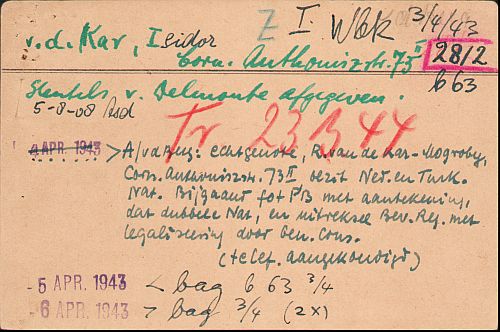 Z I. Wbk 3/4/43
v.d. Kar, Isidor
Corn. Anthoniszstr. 73 II 28/2
b 63
Sleutels v. Delmonte afgegeven.
5-8-08 Asd
Tr 23 3 44
4 APR. 1943 > A/vd Berg: echtgenote, R. van de Kar-Mogroby,
Corn. Anthoniszstr. 73 II bezit Ned. en Turk.
Nat. Bijgaand fot PB met aantekening,
dat dubbele Nat, en uittreksel Bev. Reg. met
legalisering door Gen. Cons.
(telef. aangekondigd)
- 5 APR. 1943 < bag b 63 3/4
- 6 APR. 1943 > bag 3/4 (2x)